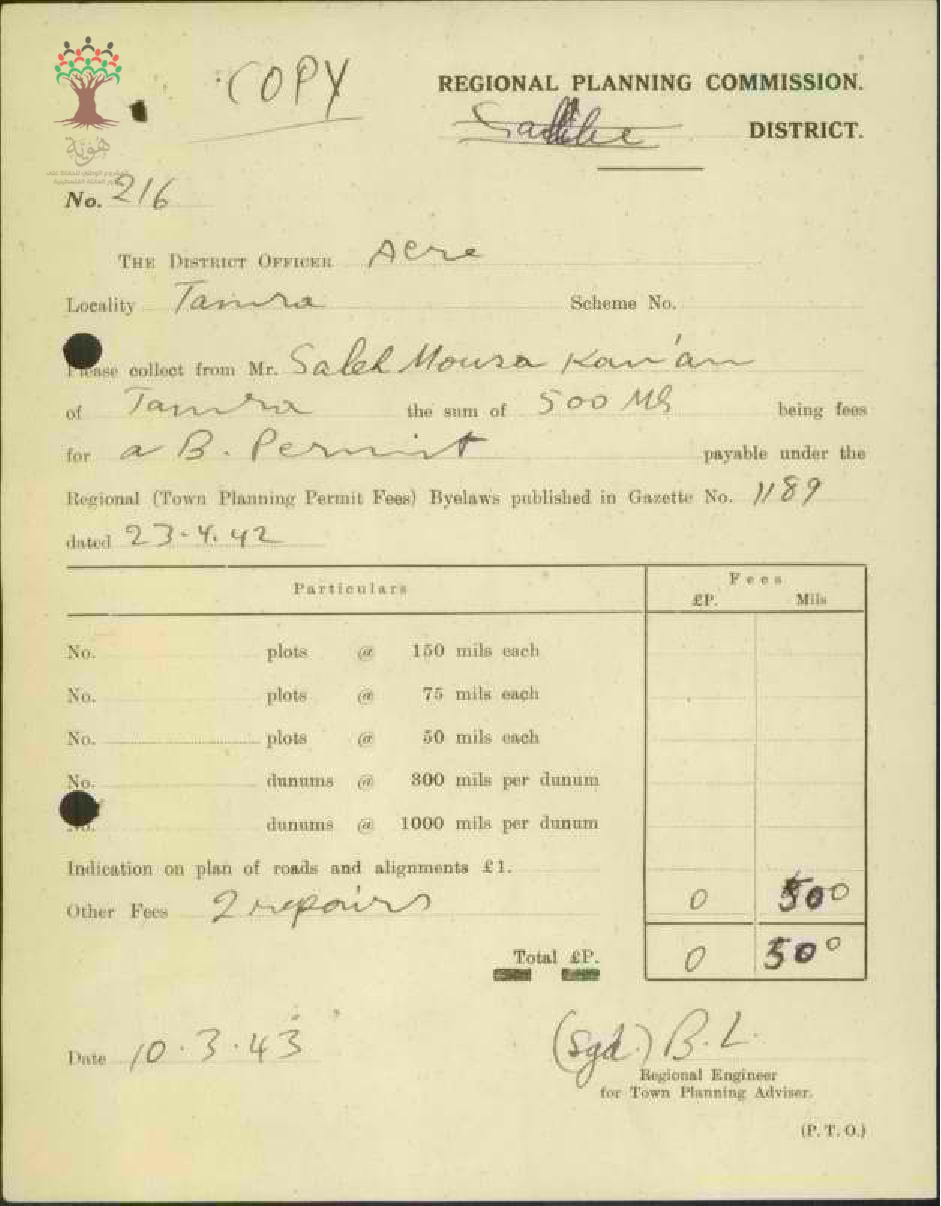 COPY
REGIONAL PLANNING COMMISSION.
DISTRICT.
هوية
No. 216
THE DISTRICT OFFICER Acre
Locality Tamra Scheme No.
Please collect from Mr. Saleh Mousa Kan'an
of Tamra the sum of 500 Mls being fees
for a B. Permit payable under the
Regional (Town Planning Permit Fees) Byelaws published in Gazette No. 1189
dated 23.4.42
Particulars Fees
£P. Mils
No. plots @ 150 mils each
No. plots @ 75 mils each
No. plots @ 50 mils each
No. dunums @ 300 mils per dunum
No. dunums @ 1000 mils per dunum
Indication on plan of roads and alignments £1.
Other Fees 2 repairs 0 500
Total £P. 0 500
Date 10.3.43 (Sgd.) B.L.
Regional Engineer
for Town Planning Adviser.
(P. T. O.)